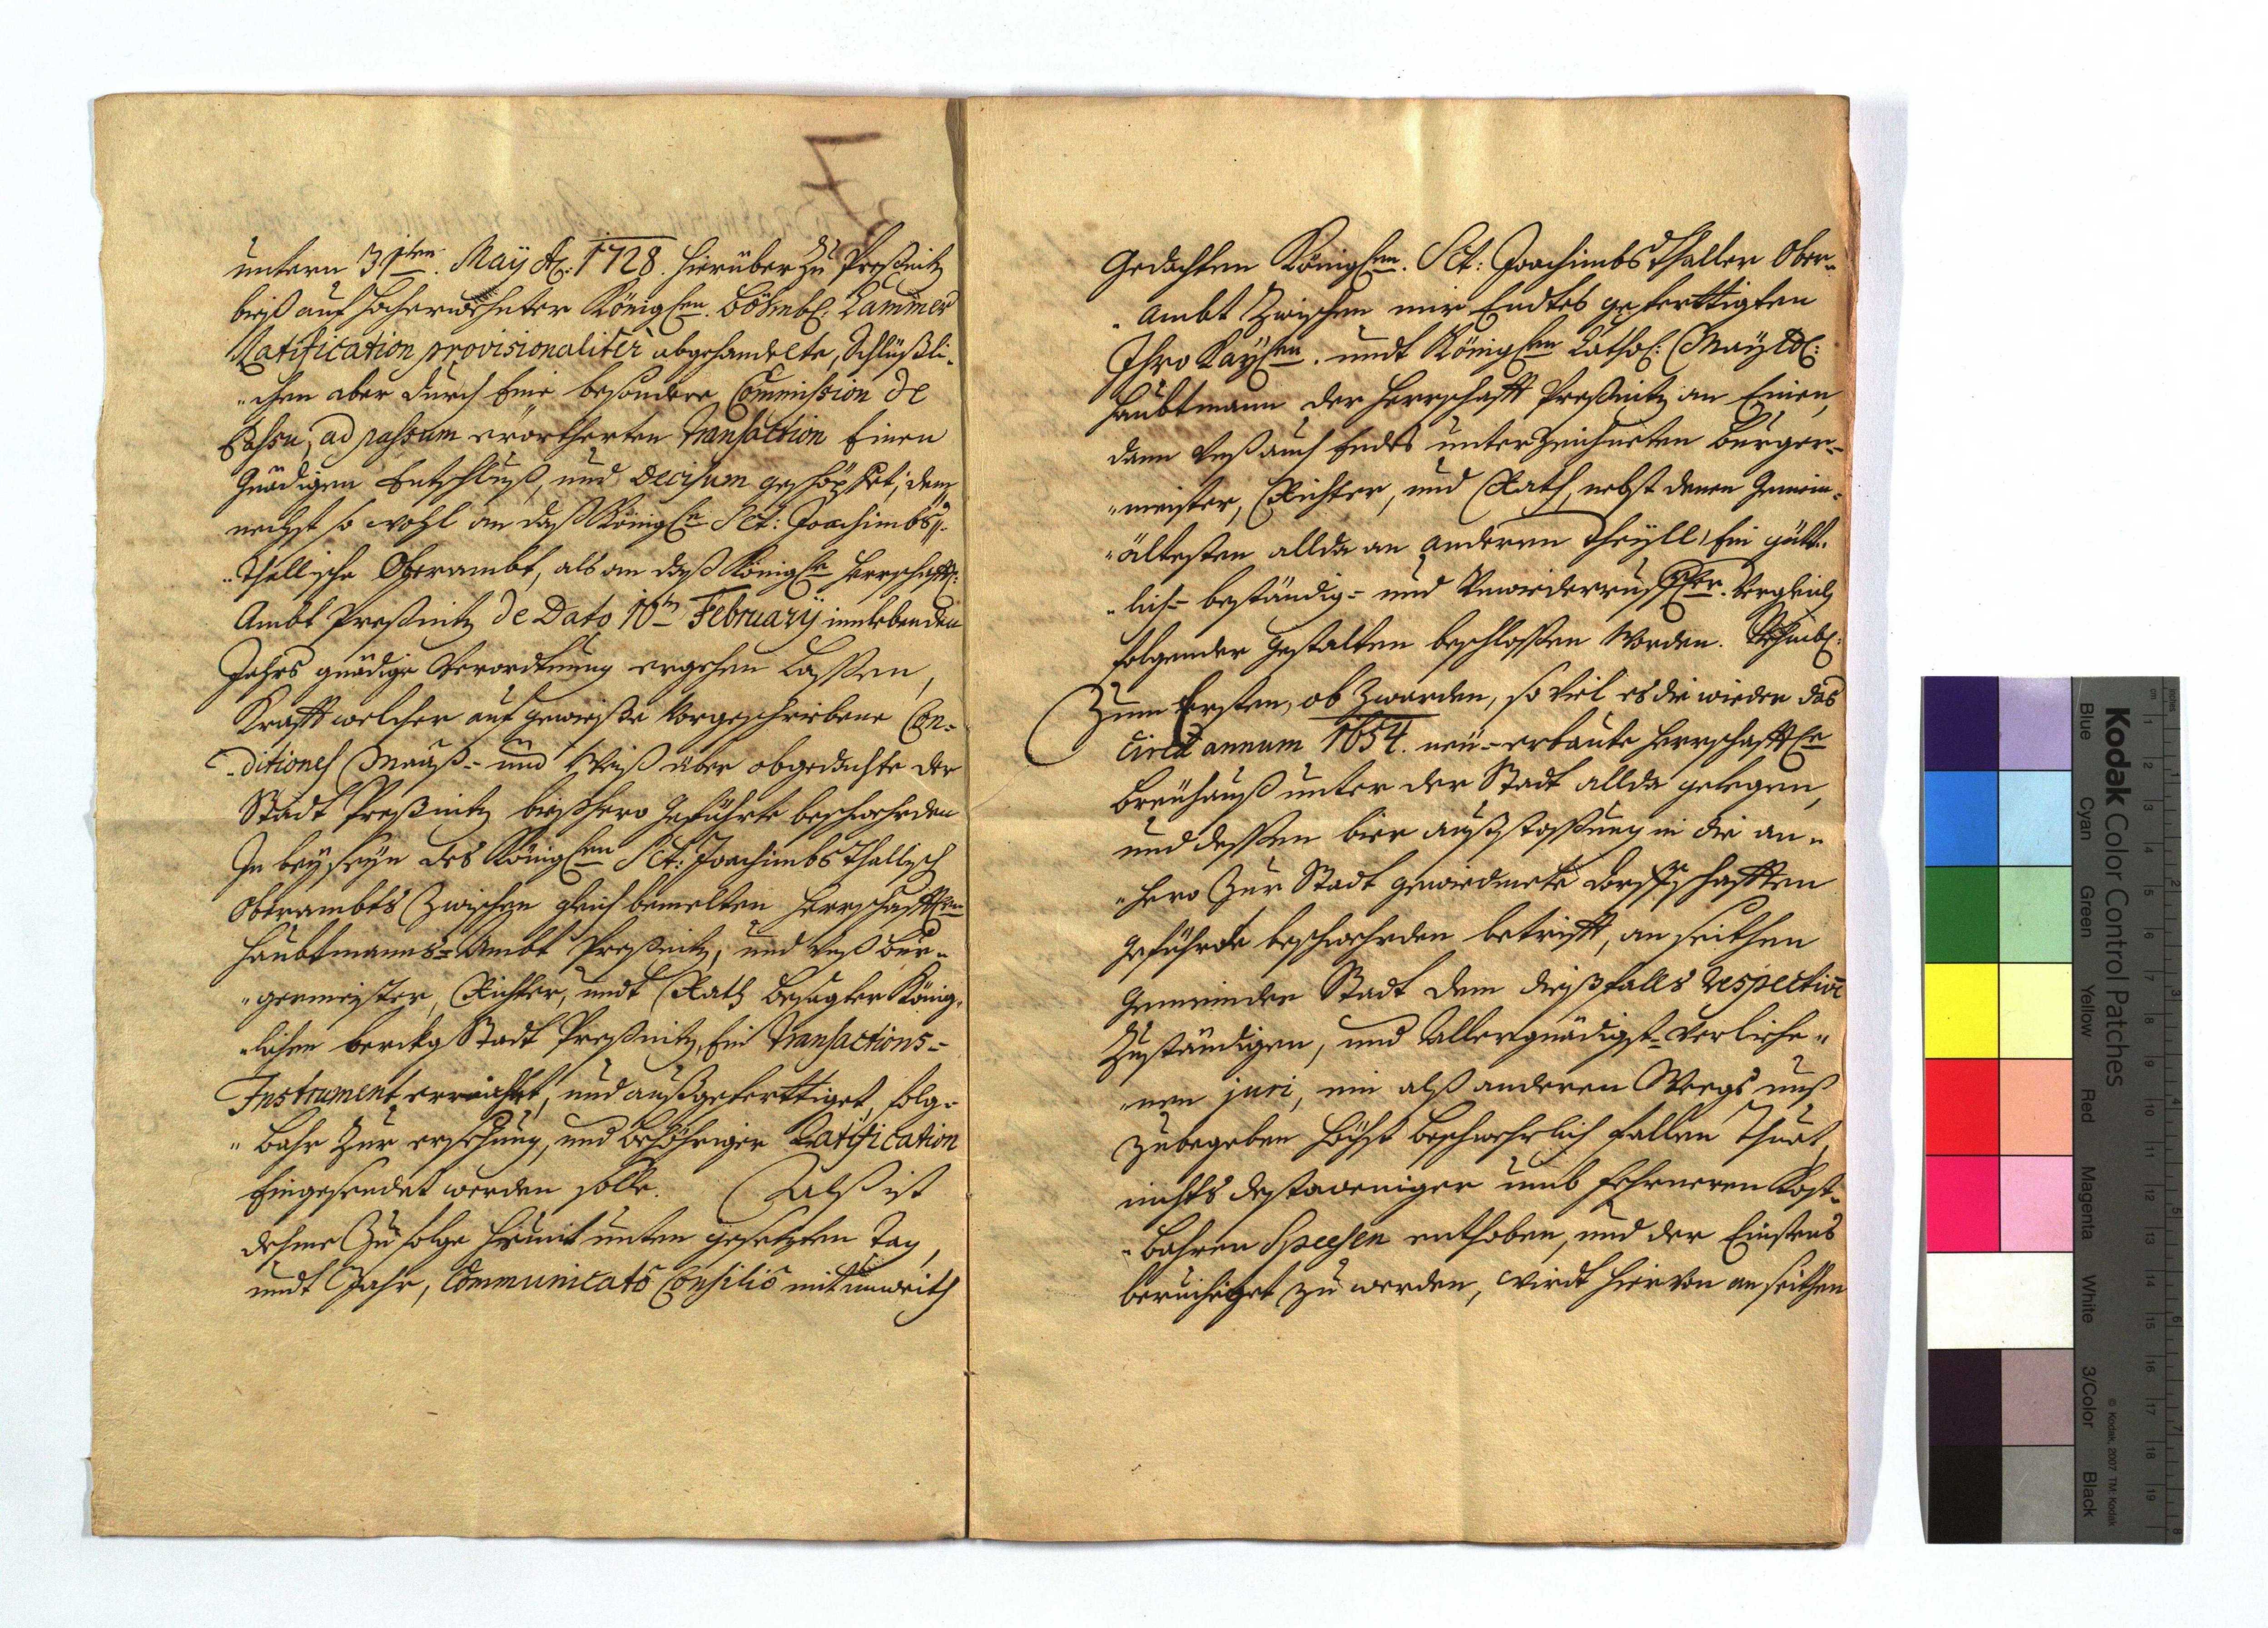 7
untern 31ten. Maÿ Ao: 1728. hierüber zu Preßnitz
biß auf hocherwehnter Königlen. Böhmbl: Cammer
Ratification provisionaliter abgehandelte, Schlüßli-
chen aber durch Eine besondere Commission de
Passu, ad passum erörtherten Transaction Einen
Gnädigen Entschluß, und Decisum geschöpfet, dem
nechst so wohl an daß Königle Sct: Joachimbs-
Thallische Oberambt, als an daß Königle Herrschaffts-
Ambt Preßnitz de Dato 10ten February innlebenden
Jahrs gnädige Verordtnung ergehen Lassen,
Krafft welcher auf gewieße Vorgeschriebene Con-
ditiones Maaß- und Weiß über obgedachte der
Stadt Preßnitz bießhero geführte beschwehrden
In beyseyn des Königlen Sct: Joachimbsthallisch
Oberambts Zwischen gleich bemelten Herrschafftlen
Haubtmanns-Ambt Preßnitz, und unß Bur-
germeister, Richter, undt Rath besagter König-
lichen berckg Stadt Preßnitz, Ein Transactions-
Instrument erruchtet, und außgeferttiget, folg-
bahr Zur ersehung, und behöhriger Ratification
Eingesendet werden solle. Alß ist
deme Zu folge heunt unten gesetzten Tag,
undt Jahr, Communicato Consilio mit
Gedachten Königlen. Sct: Joachimbsthaller Ober-
Ambt Zwischen mir Endtes geferttigten
Ihro Kaylen. undt Königlen Cathol: Mayltt:
Haubtmann der Herrschafft Preßnitz an Einen,
dann Unß auch Endts unterzeichneten Burger-
meister, Richter, und Rath, nebst denen Gemein-
ältesten allda an anderen Theyll, Ein gütt-
lich- beständig- und Unwiederrufflicher Vergleich
folgender gestalten beschloßen Worden.
Zum Ersten, ob Zwarden, so viel es die wieder das
Circa annum 1654. neü-erbaute Herrschafftle
Breühauß unter der Stadt allda gelegen,
und deßen bier außstoßung in die an-
hero Zur Stadt gewiedmete dorffschafften
geführte beschwehrden betrifft, an seithen
Gemeinder Stadt dem dießfalls respective
Zuständigen, und Allergnädigst-Verliehe-
nen juri, ein alß anderen Weegs unß
Zubegeben höchst beschwehrlich fallen thuet,
nichts destoweniger umb fehrneren Kost-
bahren Speesen enthoben, und der Einstens
beruhiget Zu werden, wirdt hiervon an seithen
Kodak Color Control Patches
Blue Cyan Green Yellow Red Magenta White 3/Color Black
© Kodak, 2007 TM: Kodak